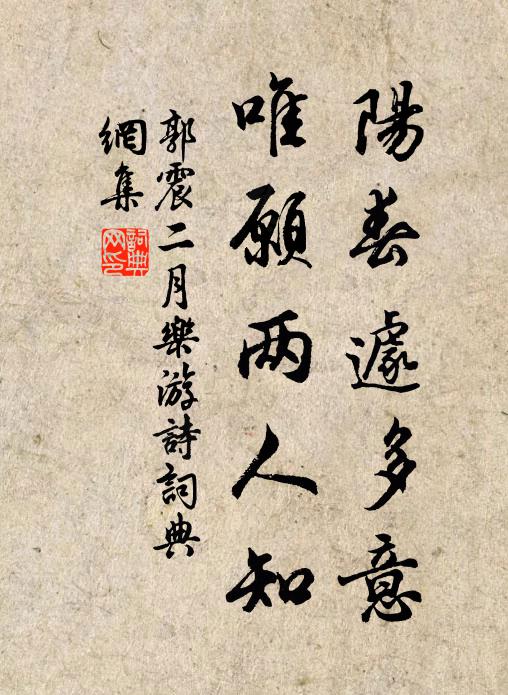 陽春遽多意
唯願两人知
郭震二月樂游詩詞典
網集
詞典网印